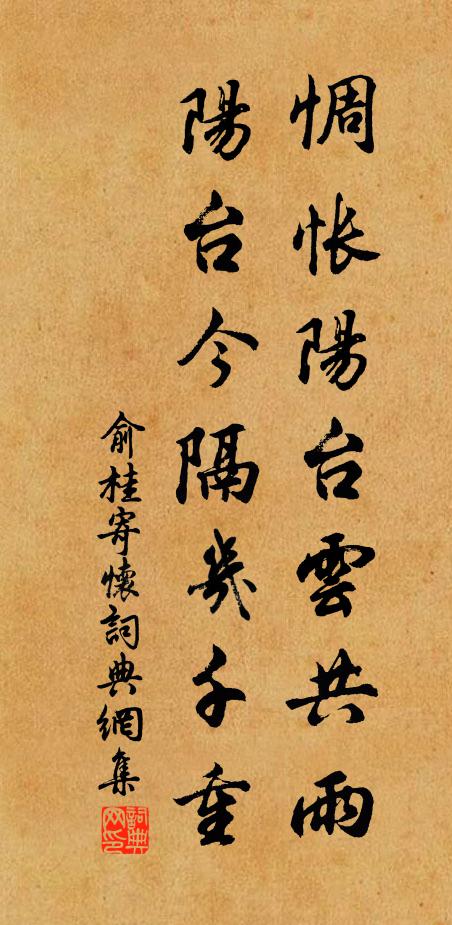 惆怅陽台雲共雨
陽台今隔幾千重
俞桂寄懷詞典網集
詞典网印